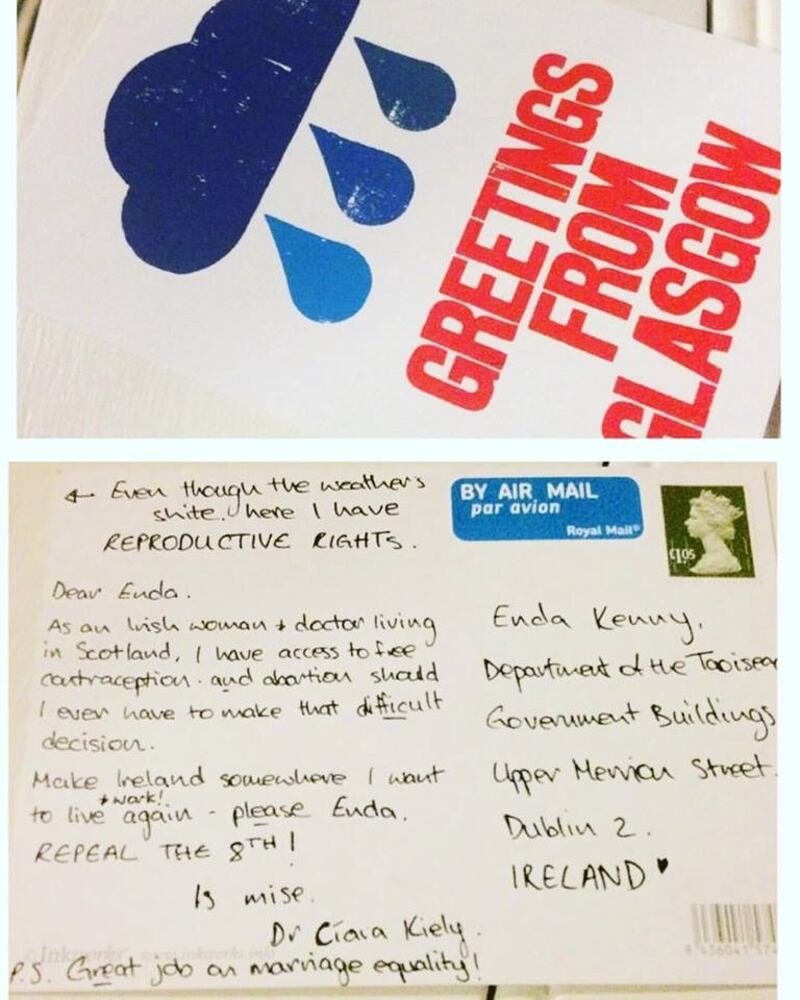 GREETINGS
FROM
GLASGOW
← Even though the weather's
shite, here I have
REPRODUCTIVE RIGHTS.
BY AIR MAIL
par avion
Royal Mail®
£1.05
Dear Enda.
As an Irish woman + doctor living
in Scotland, I have access to free
contraception. and abortion should
I ever have to make that difficult
decision.
Make Ireland somewhere I want
to live + work! again - please Enda.
REPEAL THE 8TH!
Is mise.
Dr Ciara Kiely.
P.S. Great job on marriage equality!
Enda Kenny,
Department of the Taoisea
Government Buildings
Upper Merrion Street.
Dublin 2.
IRELAND ♥